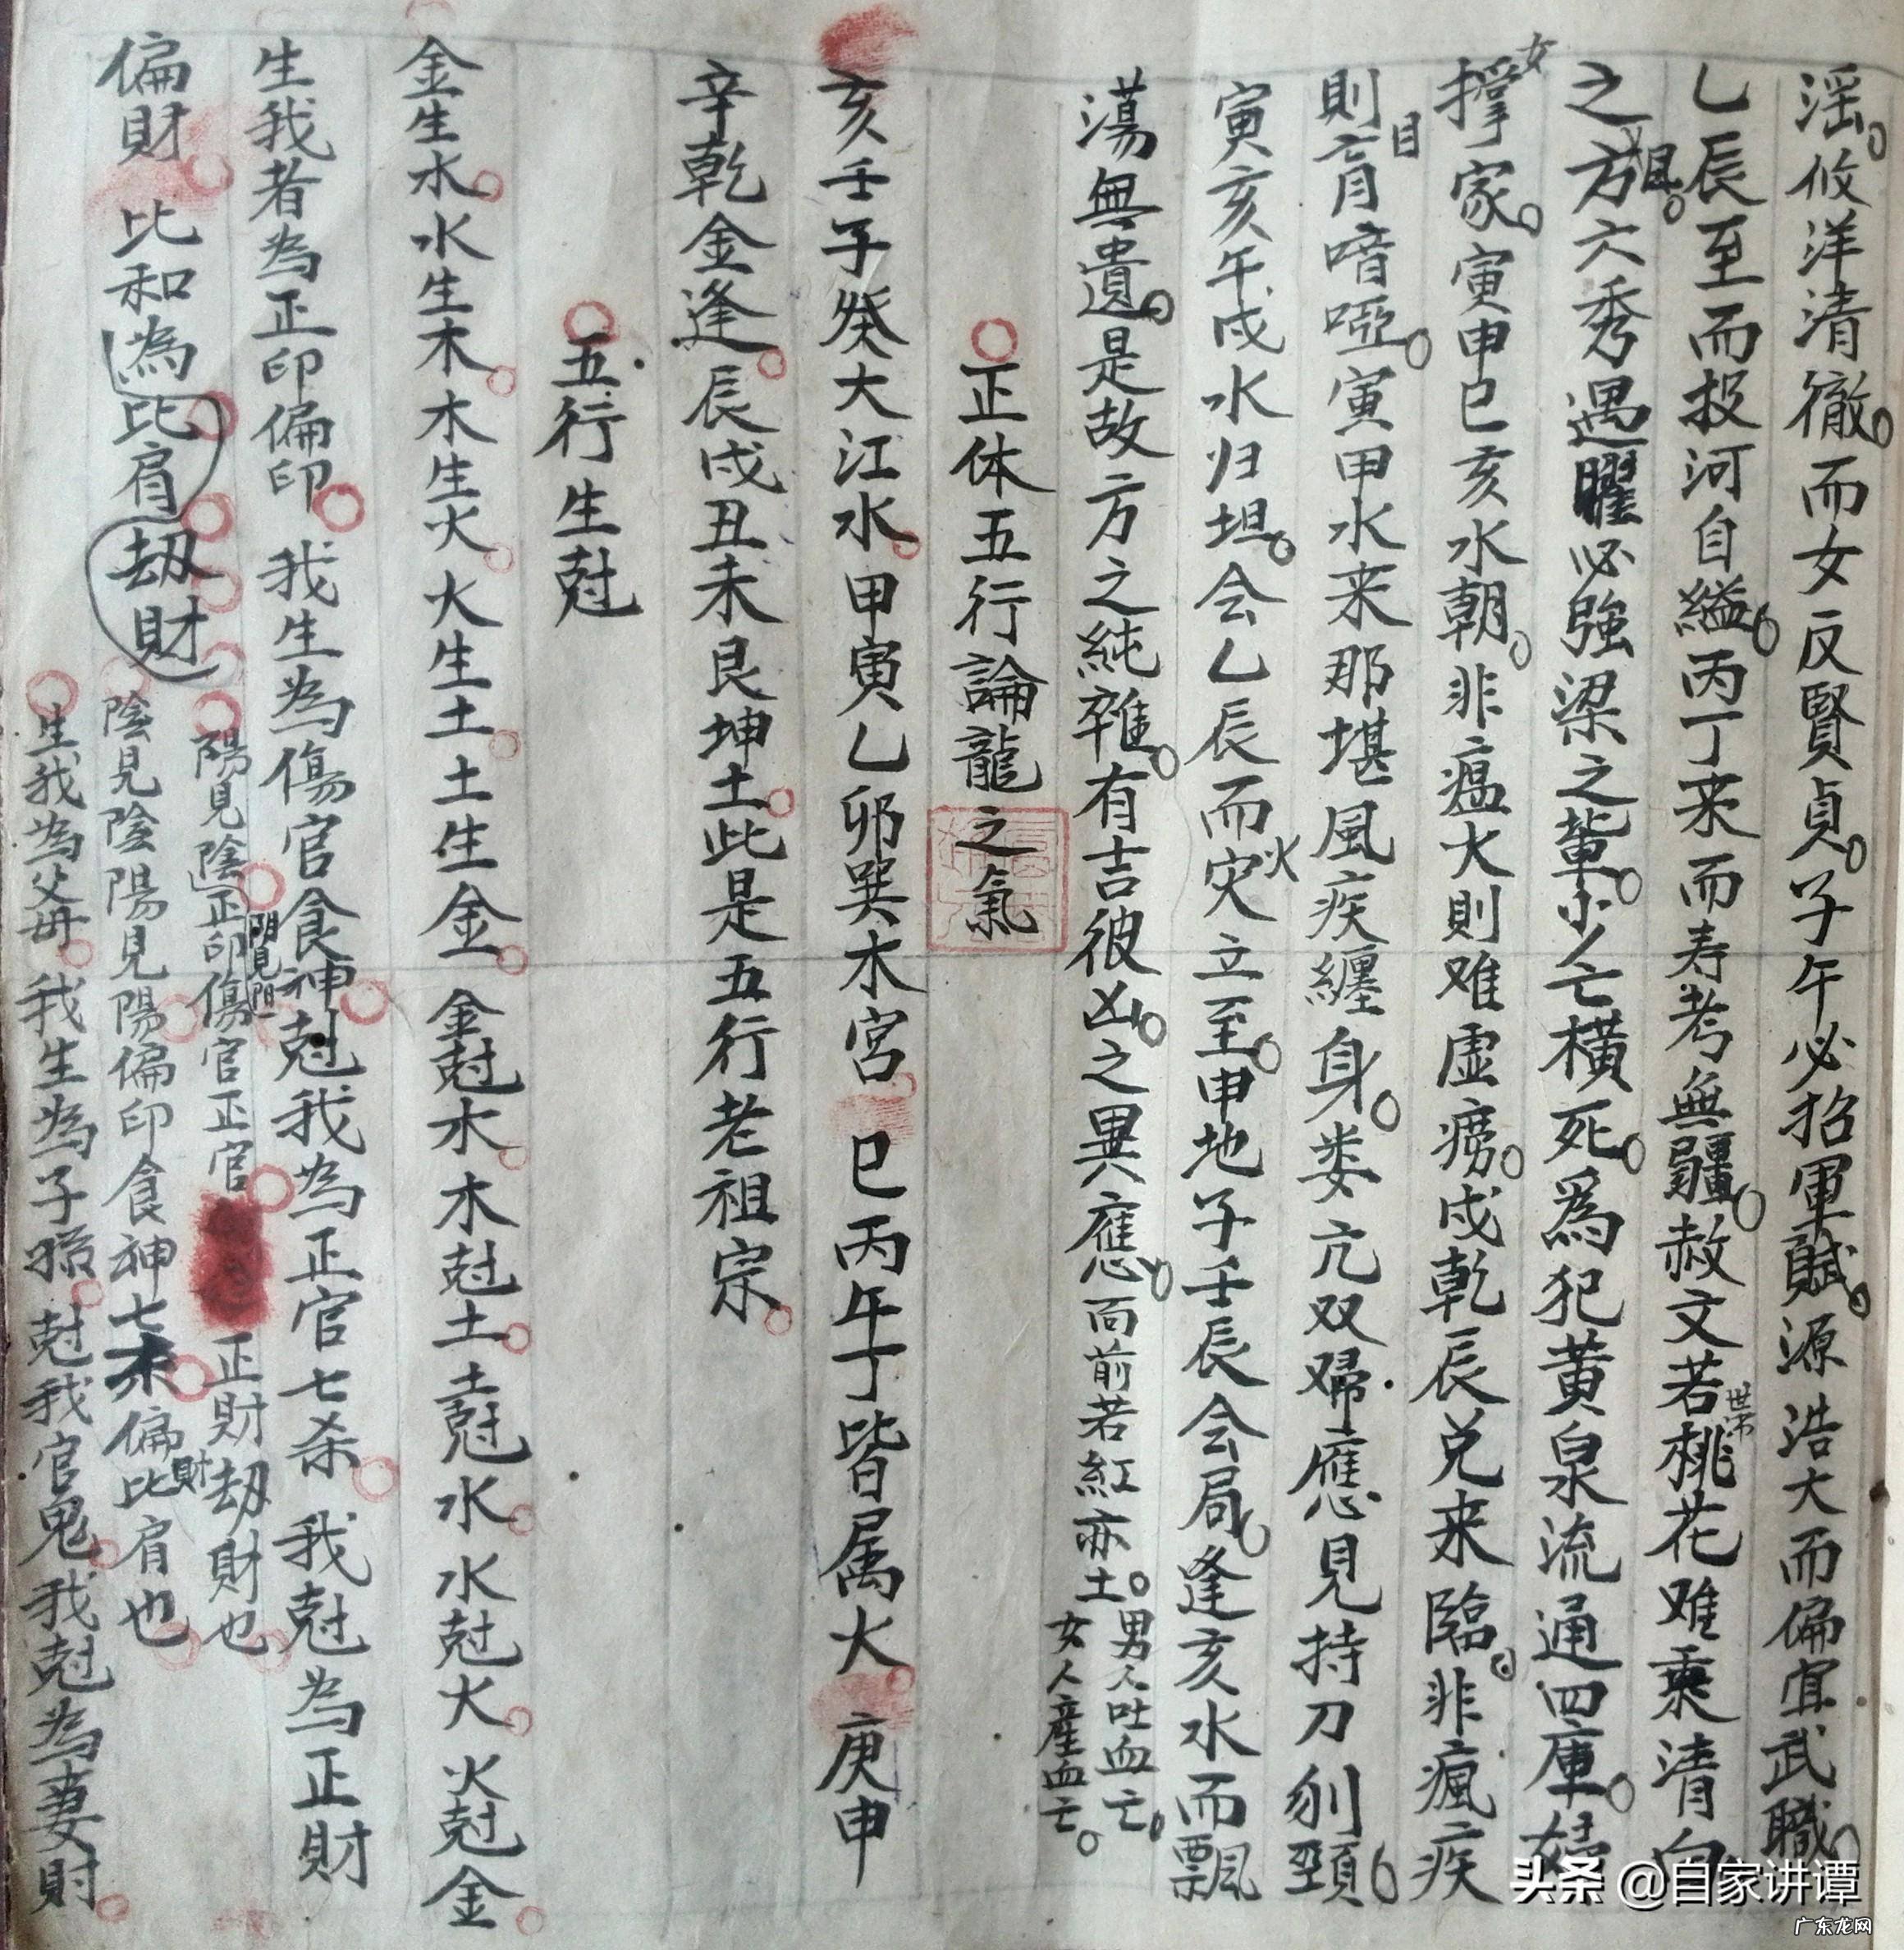 淫攸洋清徹而女反賢貞子午必招軍賊源浩大而偏宜武職
乙辰至而投河自縊丙丁来而寿考無疆赦文若桃花难乘清白
世常
之方六秀遇曜必強梁之輩少亡橫死為犯黃泉流通四庫
撐家寅申巳亥水朝非瘟火則难虛癆戌乾辰兌来臨非瘋疾
女
則盲喑啞寅甲水来那堪風疾纏身娄亢双歸應見持刀刎頸
目
寅亥午戌水归坦会乙辰而灾立至申地子壬辰会局逢亥水而飄
火
蕩無遺是故方之純雜有吉彼凶之異應面前若紅亦土
男人吐血亡
女人産血亡
正体五行論龍之氣
亥壬子癸大江水甲寅乙卯巽木宮巳丙午丁皆属火庚申
辛乾金逢辰戌丑未艮坤土此是五行老祖宗
五行生尅
金生水水生木木生火火生土土生金金尅木木尅土土尅水水尅火火尅金
生我者為正印偏印我生為傷官食神尅我為正官七杀我尅為正財
偏財比和為比肩劫財
陽見陰正印傷官正官正財劫財也
陰見陽
陰見陰陽見陽偏印食神七杀偏財比肩也
生我為父母我生為子孫尅我官鬼我尅為妻財
头条 @自家讲谭
广东龙网